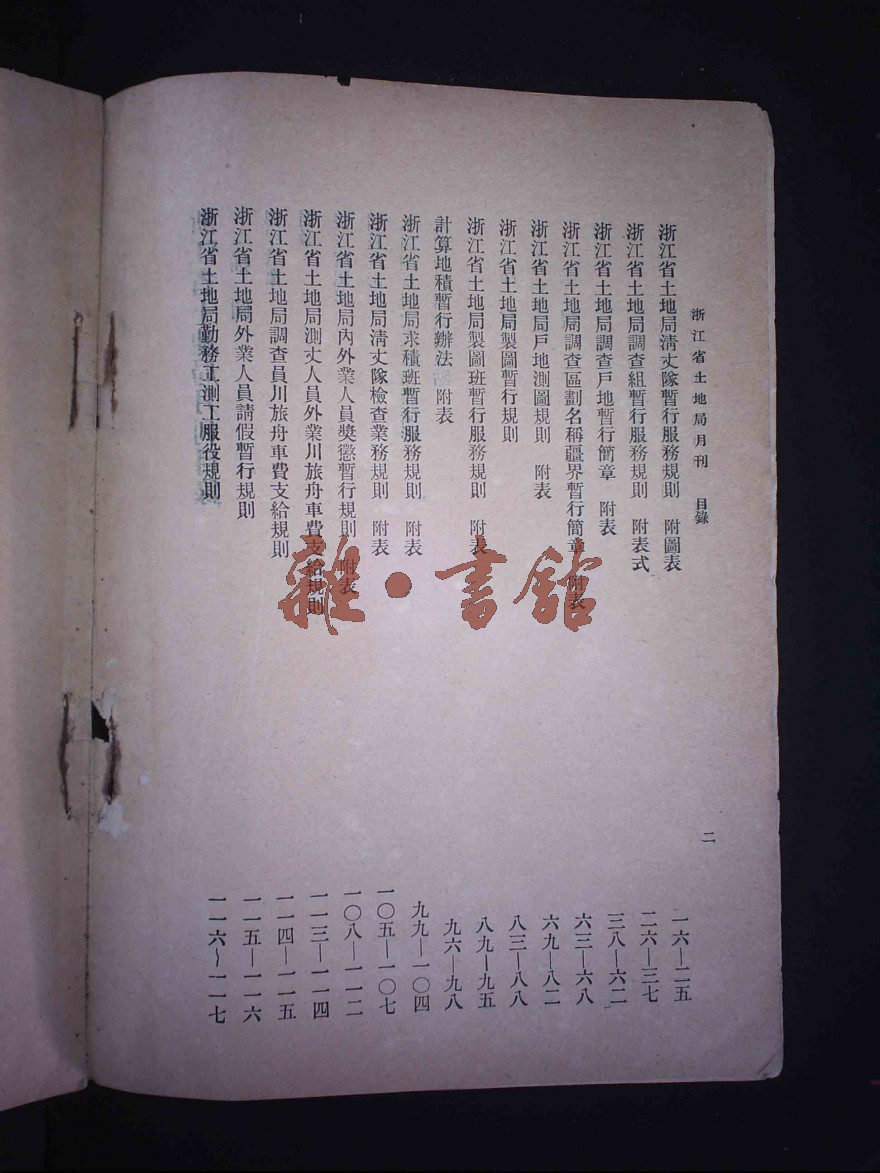 浙江省土地局月刊 目錄
二
浙江省土地局清丈隊暫行服務規則 附圖表
一六—二五
浙江省土地局調查組暫行服務規則 附表式
二六—三七
浙江省土地局調查戶地暫行簡章 附表
三八—六二
浙江省土地局調查區劃名稱疆界暫行簡章 附表
六三—六八
浙江省土地局戶地測圖規則 附表
六九—八二
浙江省土地局製圖暫行規則
八三—八八
浙江省土地局製圖班暫行服務規則 附表
八九—九五
計算地積暫行辦法 附表
九六—九八
浙江省土地局求積班暫行服務規則 附表
九九—一〇四
浙江省土地局清丈隊檢查業務規則 附表
一〇五—一〇七
浙江省土地局內外業人員獎懲暫行規則 附表
一〇八—一一二
浙江省土地局測丈人員外業川旅舟車費支給規則
一一三—一一四
浙江省土地局調查員川旅舟車費支給規則
一一四—一一五
浙江省土地局外業人員請假暫行規則
一一五—一一六
浙江省土地局勤務工測工服役規則
一一六～一一七
雜·書館